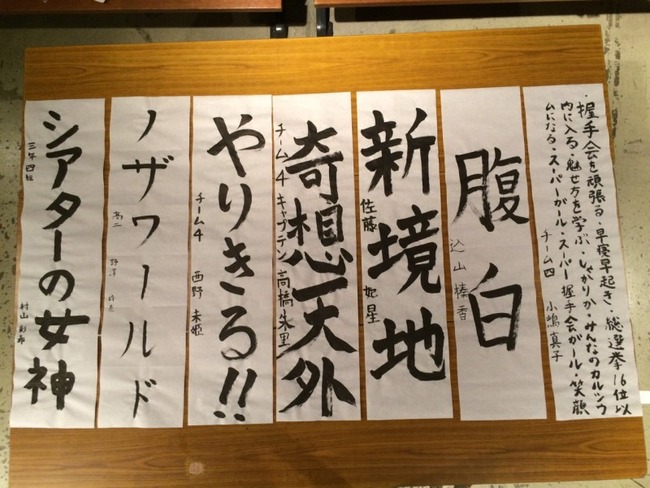 ・握手会を頑張る・早寝早起き・総選挙16位以
内に入る・魅せ方を学ぶ・しゃかりか・みんなのカルシウ
ムになる・スーパーガール・スーパー握手会ガール・笑顔
チーム四 小嶋真子
腹白
込山榛香
新境地
佐藤 妃星
奇想天外
チーム4 キャプテン 高橋朱里
やりきる!!
チーム4 西野未姫
ノザワールド
高二 野澤
シアターの女神
三年四組 村山彩希